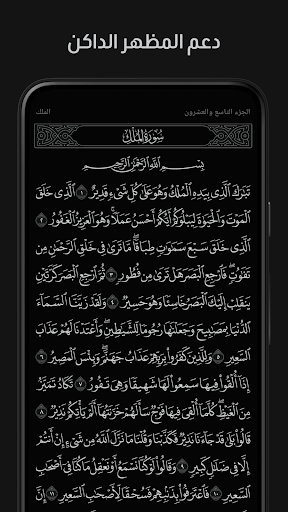 دعم المظهر الداكن
الجزء التاسع والعشرون
الملك
سُورَةُ المُلْكِ
بِسْمِ اللَّهِ الرَّحْمَٰنِ الرَّحِيمِ
تَبَٰرَكَ ٱلَّذِى بِيَدِهِ ٱلْمُلْكُ وَهُوَ عَلَىٰ كُلِّ شَىْءٍ قَدِيرٌ ١ ٱلَّذِى خَلَقَ
ٱلْمَوْتَ وَٱلْحَيَوٰةَ لِيَبْلُوَكُمْ أَيُّكُمْ أَحْسَنُ عَمَلًا وَهُوَ ٱلْعَزِيزُ ٱلْغَفُورُ ٢
ٱلَّذِى خَلَقَ سَبْعَ سَمَٰوَٰتٍ طِبَاقًا مَّا تَرَىٰ فِى خَلْقِ ٱلرَّحْمَٰنِ مِن
تَفَٰوُتٍ فَٱرْجِعِ ٱلْبَصَرَ هَلْ تَرَىٰ مِن فُطُورٍ ٣ ثُمَّ ٱرْجِعِ ٱلْبَصَرَ كَرَّتَيْنِ
يَنقَلِبْ إِلَيْكَ ٱلْبَصَرُ خَاسِئًا وَهُوَ حَسِيرٌ ٤ وَلَقَدْ زَيَّنَّا ٱلسَّمَآءَ
ٱلدُّنْيَا بِمَصَٰبِيحَ وَجَعَلْنَٰهَا رُجُومًا لِّلشَّيَٰطِينِ وَأَعْتَدْنَا لَهُمْ عَذَابَ
ٱلسَّعِيرِ ٥ وَلِلَّذِينَ كَفَرُوا۟ بِرَبِّهِمْ عَذَابُ جَهَنَّمَ وَبِئْسَ ٱلْمَصِيرُ ٦
إِذَآ أُلْقُوا۟ فِيهَا سَمِعُوا۟ لَهَا شَهِيقًا وَهِىَ تَفُورُ ٧ تَكَادُ تَمَيَّزُ
مِنَ ٱلْغَيْظِ كُلَّمَآ أُلْقِىَ فِيهَا فَوْجٌ سَأَلَهُمْ خَزَنَتُهَآ أَلَمْ يَأْتِكُمْ نَذِيرٌ ٨
قَالُوا۟ بَلَىٰ قَدْ جَآءَنَا نَذِيرٌ فَكَذَّبْنَا وَقُلْنَا مَا نَزَّلَ ٱللَّهُ مِن شَىْءٍ إِنْ أَنتُمْ
إِلَّا فِى ضَلَٰلٍ كَبِيرٍ ٩ وَقَالُوا۟ لَوْ كُنَّا نَسْمَعُ أَوْ نَعْقِلُ مَا كُنَّا فِىٓ أَصْحَٰبِ
ٱلسَّعِيرِ ١٠ فَٱعْتَرَفُوا۟ بِذَنۢبِهِمْ فَسُحْقًا لِّأَصْحَٰبِ ٱلسَّعِيرِ ١١